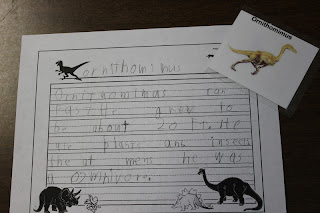 Ornithomimus
ornithomimus
Ornithomimus ran
fast. He grew to
be about 20 ft. He
ate plants and insects
that mens he was
a omnivore.